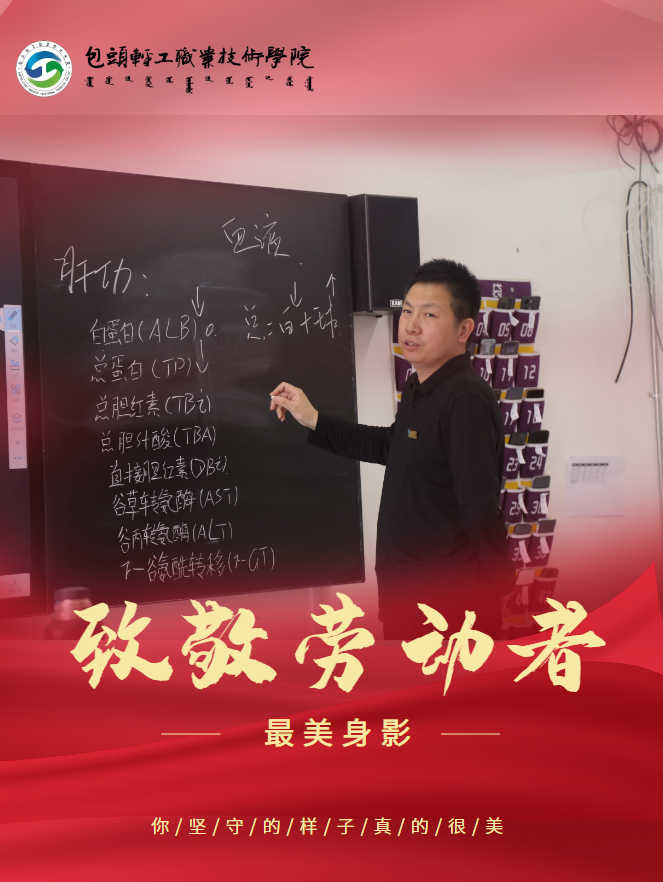 包頭輕工職業技術學院
血液
肝功：
自蛋白(ALB)
总二白+球
总蛋白(TP)
总胆红素(TBi)
总胆汁酸(TBA)
直接胆红素(DBi)
谷草转氨酶(AST)
谷丙转氨酶(ALT)
谷氨酰转移(r-GT)
袋
05
06
10
12
23
24
致敬劳动者
最美身影
你/坚/守/的/样/子/真/的/很/美